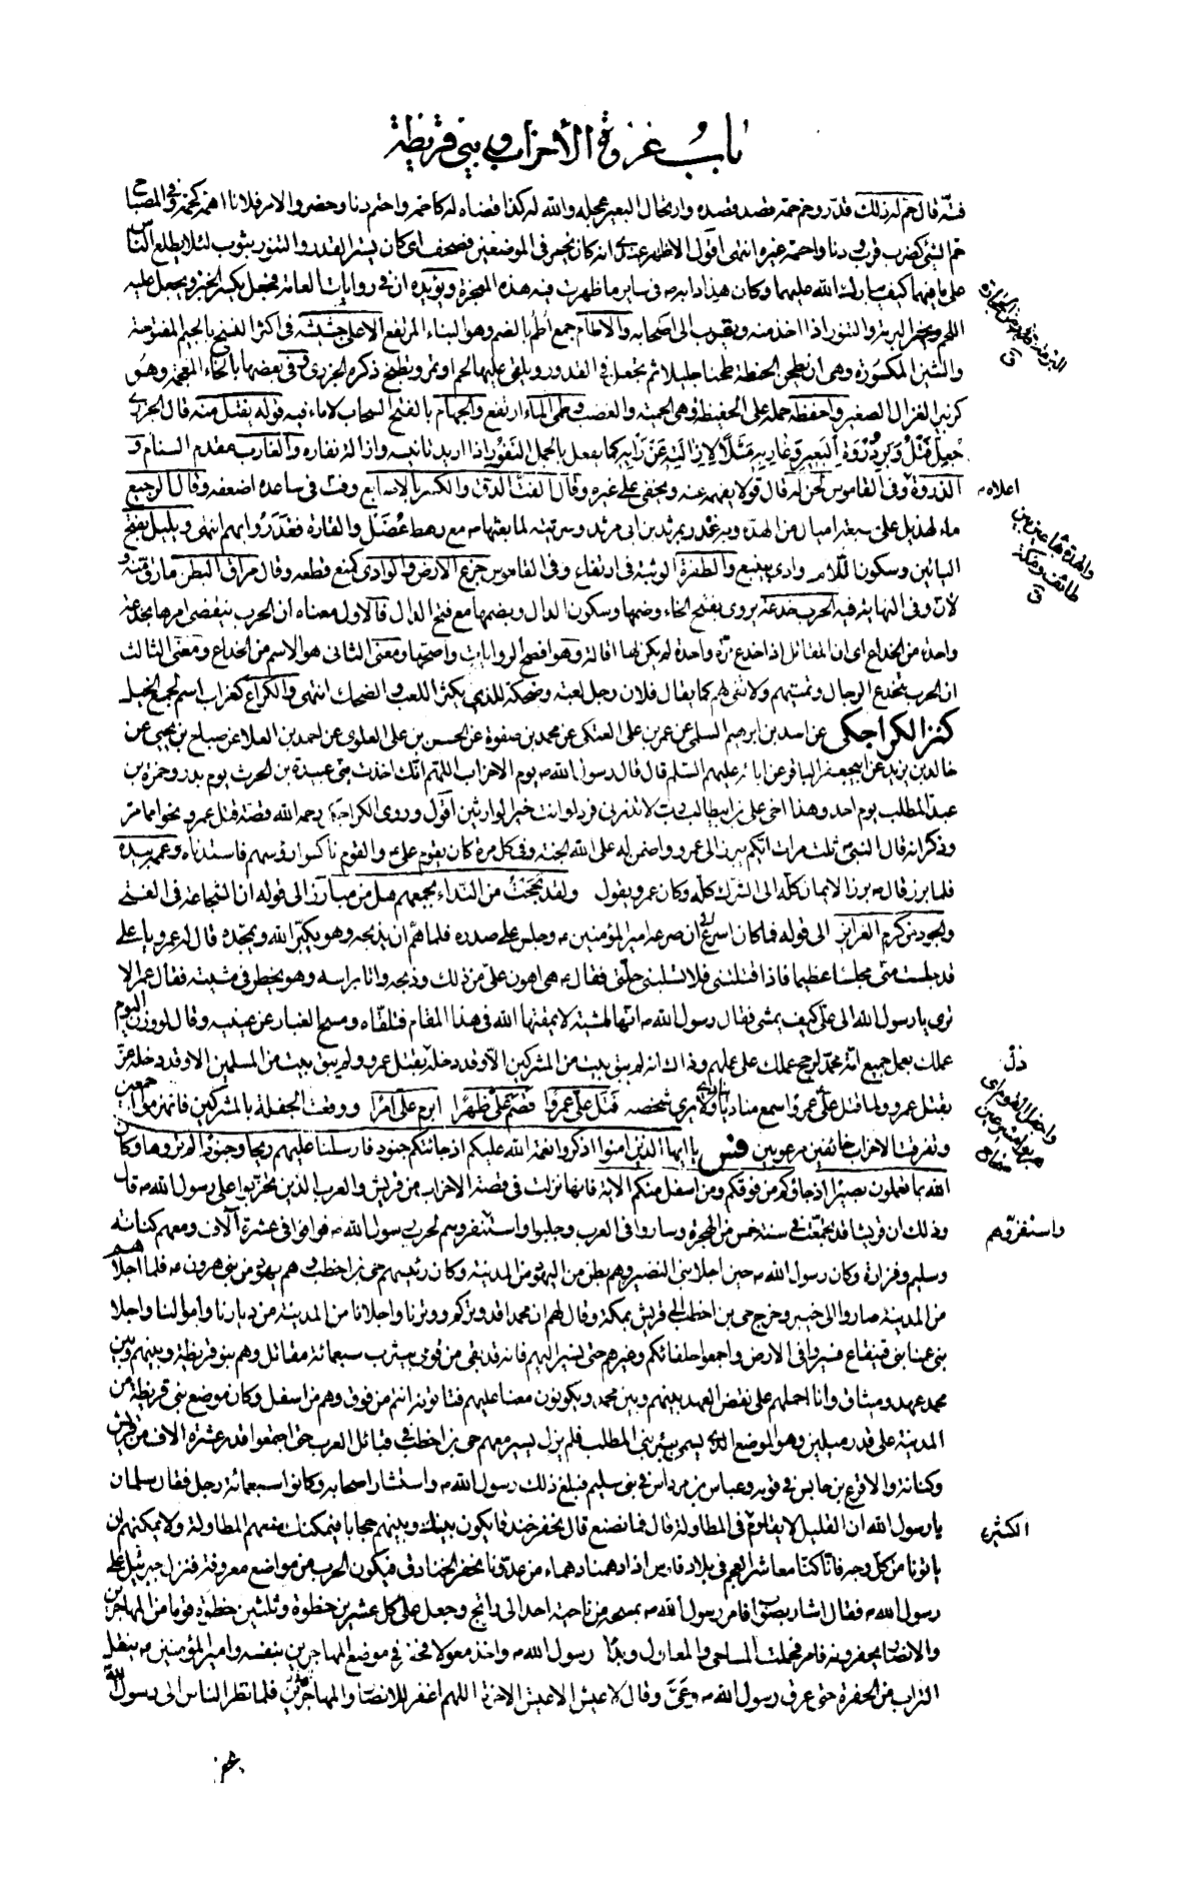 باب غزوة الأحزاب وبني قريظة
فنه قال حم له ذلك قدر وحم حمه قصد قصده وارتحال البعير عجله والله له كذا قضاه له كاحمه واحتم دنا وحضر والامر فلانا اهمه كحمه وفي المصباح
حم الشئ كضرب قرب ودنا واحمه غيره انتهى اقول الاظهر عندي انه كان يخمر في الموضعين فصحف اى كان يستر القدر والتنور بثوب لئلا يطلع الناس
على ما فيهما كيف يبارك الله عليهما وكان هذا دابه ص في ساير ما ظهرت فيه هذه المعجزة ويؤيده ان في روايات العامة فجعل يكسر الخبز ويجعل عليه
اللحم ويخمر البرمة والتنور اذا اخذ منه ويقرب الى اصحابه والاطام جمع اطم بالضم وهو البناء المرتفع الاعلى جشيشة في اكثر النسخ بالجيم المفتوحة
والشين المكسورة وهي ان تطحن الحنطة طحنا جليلا ثم تجعل في القدور ويلقى عليها لحم او تمر وتطبخ ذكره الجزري وفي بعضها بالخاء المعجمة وهو
كزبير الغزال الصغير واحفظه حمله على الحفيظة وهي الحمية والغضب وطمى الماء ارتفع والجهام بالفتح السحاب لا ماء فيه قوله يفتل منه قال الجزري
جعل فتل وبر ذروة البعير وغاربه مثلا لازالته عن رايه كما يفعل بالجمل النفور اذا اريد تانيسه وازالة نفاره والغارب مقدم السنام و
الذروة اعلاه وفي القاموس لحن له قال قولا يفهمه عنه ويخفى على غيره وقال الفت الدق والكسر بالاصابع وفت في ساعده اضعفه وقال الرجيع
ماء لهذيل على سبعة اميال من الهدة وبه غدر بمرثد بن ابي مرثد وسريته لما بعثها ص مع رهط عضل والقارة فغدروا بهم انتهى ويليل بفتح
اليائين وسكون اللام وادي ينبع والطفرة الوثبة في ارتفاع وفي القاموس جزع الارض والوادي كمنع قطعه وقال مراق البطن ما رق منه و
لان وفي النهاية فيه الحرب خدعة يروى بفتح الخاء وضمها وسكون الدال وبضمها مع فتح الدال فالاول معناه ان الحرب ينقضي امرها بخدعة
واحدة من الخداع اى ان المقاتل اذا خدع مرة واحدة لم يكن لها اقالة وهو افصح الروايات واصحها ومعنى الثاني هو الاسم من الخداع ومعنى الثالث
ان الحرب تخدع الرجال وتمنيهم ولا تفي لهم كما يقال فلان رجل لعبة وضحكة للذي يكثر اللعب والضحك انتهى والكراع كغراب اسم لجمع الخيل
كنز الكراجكي عن اسد بن ابرهيم السلمي عن عمر بن علي العتكي عن محمد بن صفوة عن الحسن بن علي العلوي عن احمد بن العلا عن صباح بن يحيى عن
خالد بن يزيد عن ابيجعفر الباقر عن ابائه عليهم السلم قال قال رسول الله ص يوم الاحزاب اللهم انك اخذت مني عبيدة بن الحرث يوم بدر وحمزة بن
عبد المطلب يوم احد وهذا اخي علي بن ابيطالب رب لا تذرني فردا وانت خير الوارثين اقول وروى الكراجكي رحمه الله قصة قتل عمرو نحوا مما مر
وذكر انه قال النبي ص ثلث مرات ايكم يبرز الى عمرو واضمن له على الله الجنة وفي كل مرة كان يقوم علي ع والقوم ناكسوا رؤسهم فاستدناه وعممه بيده
فلما برز قال ص برز الايمان كله الى الشرك كله وكان عمرو يقول ولقد بححت من النداء بجمعهم هل من مبارز الى قوله ان الشجاعة في الفتى
والجود من كرم الغرايز الى قوله فما كان اسرع ان صرعه امير المؤمنين ع وجلس على صدره فلما هم ان يذبحه وهو يكبر الله ويمجده قال له عمرو يا علي
قد جلست مني مجلسا عظيما فاذا قتلتني فلا تسلبني حلتي فقال ع هي اهون علي من ذلك وذبحه واتى براسه وهو يخطر في مشيته فقال عمر الا
ترى يا رسول الله الى علي كيف يمشي فقال رسول الله ص انها لمشية لا يمقتها الله في هذا المقام فتلقاه ومسح الغبار عن عينيه وقال لو وزن اليوم
عملك بعمل جميع امة محمد لرجح عملك على عملهم وذاك انه لم يبق بيت من المشركين الا وقد دخله ذل بقتل عمرو ولم يبق بيت من المسلمين الا وقد دخله عز
بقتل عمرو ولما قتل علي ع عمروا سمع مناديا ينادي ولا يرى شخصه قتل علي عمروا قصم علي ظهرا ابرم علي امرا ووقعت الجفلة بالمشركين فانهزموا اجمعين
وتفرقت الاحزاب خائفين مرعوبين فس يا ايها الذين امنوا اذكروا نعمة الله عليكم اذ جائتكم جنود فارسلنا عليهم ريحا وجنودا لم تروها وكان
الله بما تعملون بصيرا اذ جاؤكم من فوقكم ومن اسفل منكم الاية فانها نزلت في قصة الاحزاب من قريش والعرب الذين تحزبوا على رسول الله ص قال
وذلك ان قريشا قد تجمعت في سنة خمس من الهجرة وساروا في العرب وجلبوا واستنفروهم لحرب رسول الله ص فوافوا في عشرة آلاف ومعهم كنانة
وسليم وفزارة وكان رسول الله ص حين اجلا بني النضير وهم بطن من اليهود من المدينة وكان رئيسهم حي بن اخطب وهم يهود من بني هرون ع فلما اجلاهم
من المدينة صاروا الى خيبر وخرج حي بن اخطب الى قريش بمكة وقال لهم ان محمدا قد وتركم ووترنا واجلانا من المدينة من ديارنا واموالنا واجلا
بني عمنا بني قينقاع فسيروا في الارض واجمعوا حلفائكم وغيرهم حتى نسير اليهم فانه قد بقي من قومي بيثرب سبعمائة مقاتل وهم بنو قريظة وبينهم وبين
محمد عهد وميثاق وانا احملهم على نقض العهد بينهم وبين محمد ويكونون معنا عليهم فتاتونه انتم من فوق وهم من اسفل وكان موضع بني قريظة من
المدينة على قدر ميلين وهو الموضع الذي يسمى ببئر بني المطلب فلم يزل يسير معهم حي بن اخطب في قبائل العرب حتى اجتمعوا قدر عشرة الاف من قريش
وكنانة والاقرع بن حابس في قومه وعباس بن مرداس في بني سليم فبلغ ذلك رسول الله ص واستشار اصحابه وكانوا سبعمائة رجل فقال سلمان
يا رسول الله ان القليل لا يقاوم الكثير في المطاولة قال فما نصنع قال نحفر خندقا يكون بيننا وبينهم حجابا فيمكنك منعهم المطاولة ولا يمكنهم ان
ياتونا من كل وجه فانا كنا معاشر العجم في بلاد فارس اذا دهمنا دهماء من عدونا نحفر الخنادق فيكون الحرب من مواضع معروفة فنزل جبرئيل على
رسول الله ص فقال اشار بصواب فامر رسول الله ص بمسحه من ناحية احد الى راتج وجعل على كل عشرين خطوة وثلثين خطوة قوما من المهاجرين
والانصار يحفرونه فامر فحملت المساحي والمعاول وبدأ رسول الله ص واخذ معولا فحفر في موضع المهاجرين بنفسه وامير المؤمنين ع ينقل
التراب من الحفرة حتى عرق رسول الله ص وعيى وقال لا عيش الا عيش الاخرة اللهم اغفر للانصار والمهاجرين فلما نظر الناس الى رسول الله
اعلاه
ذل
واستفزوهم
الكثير